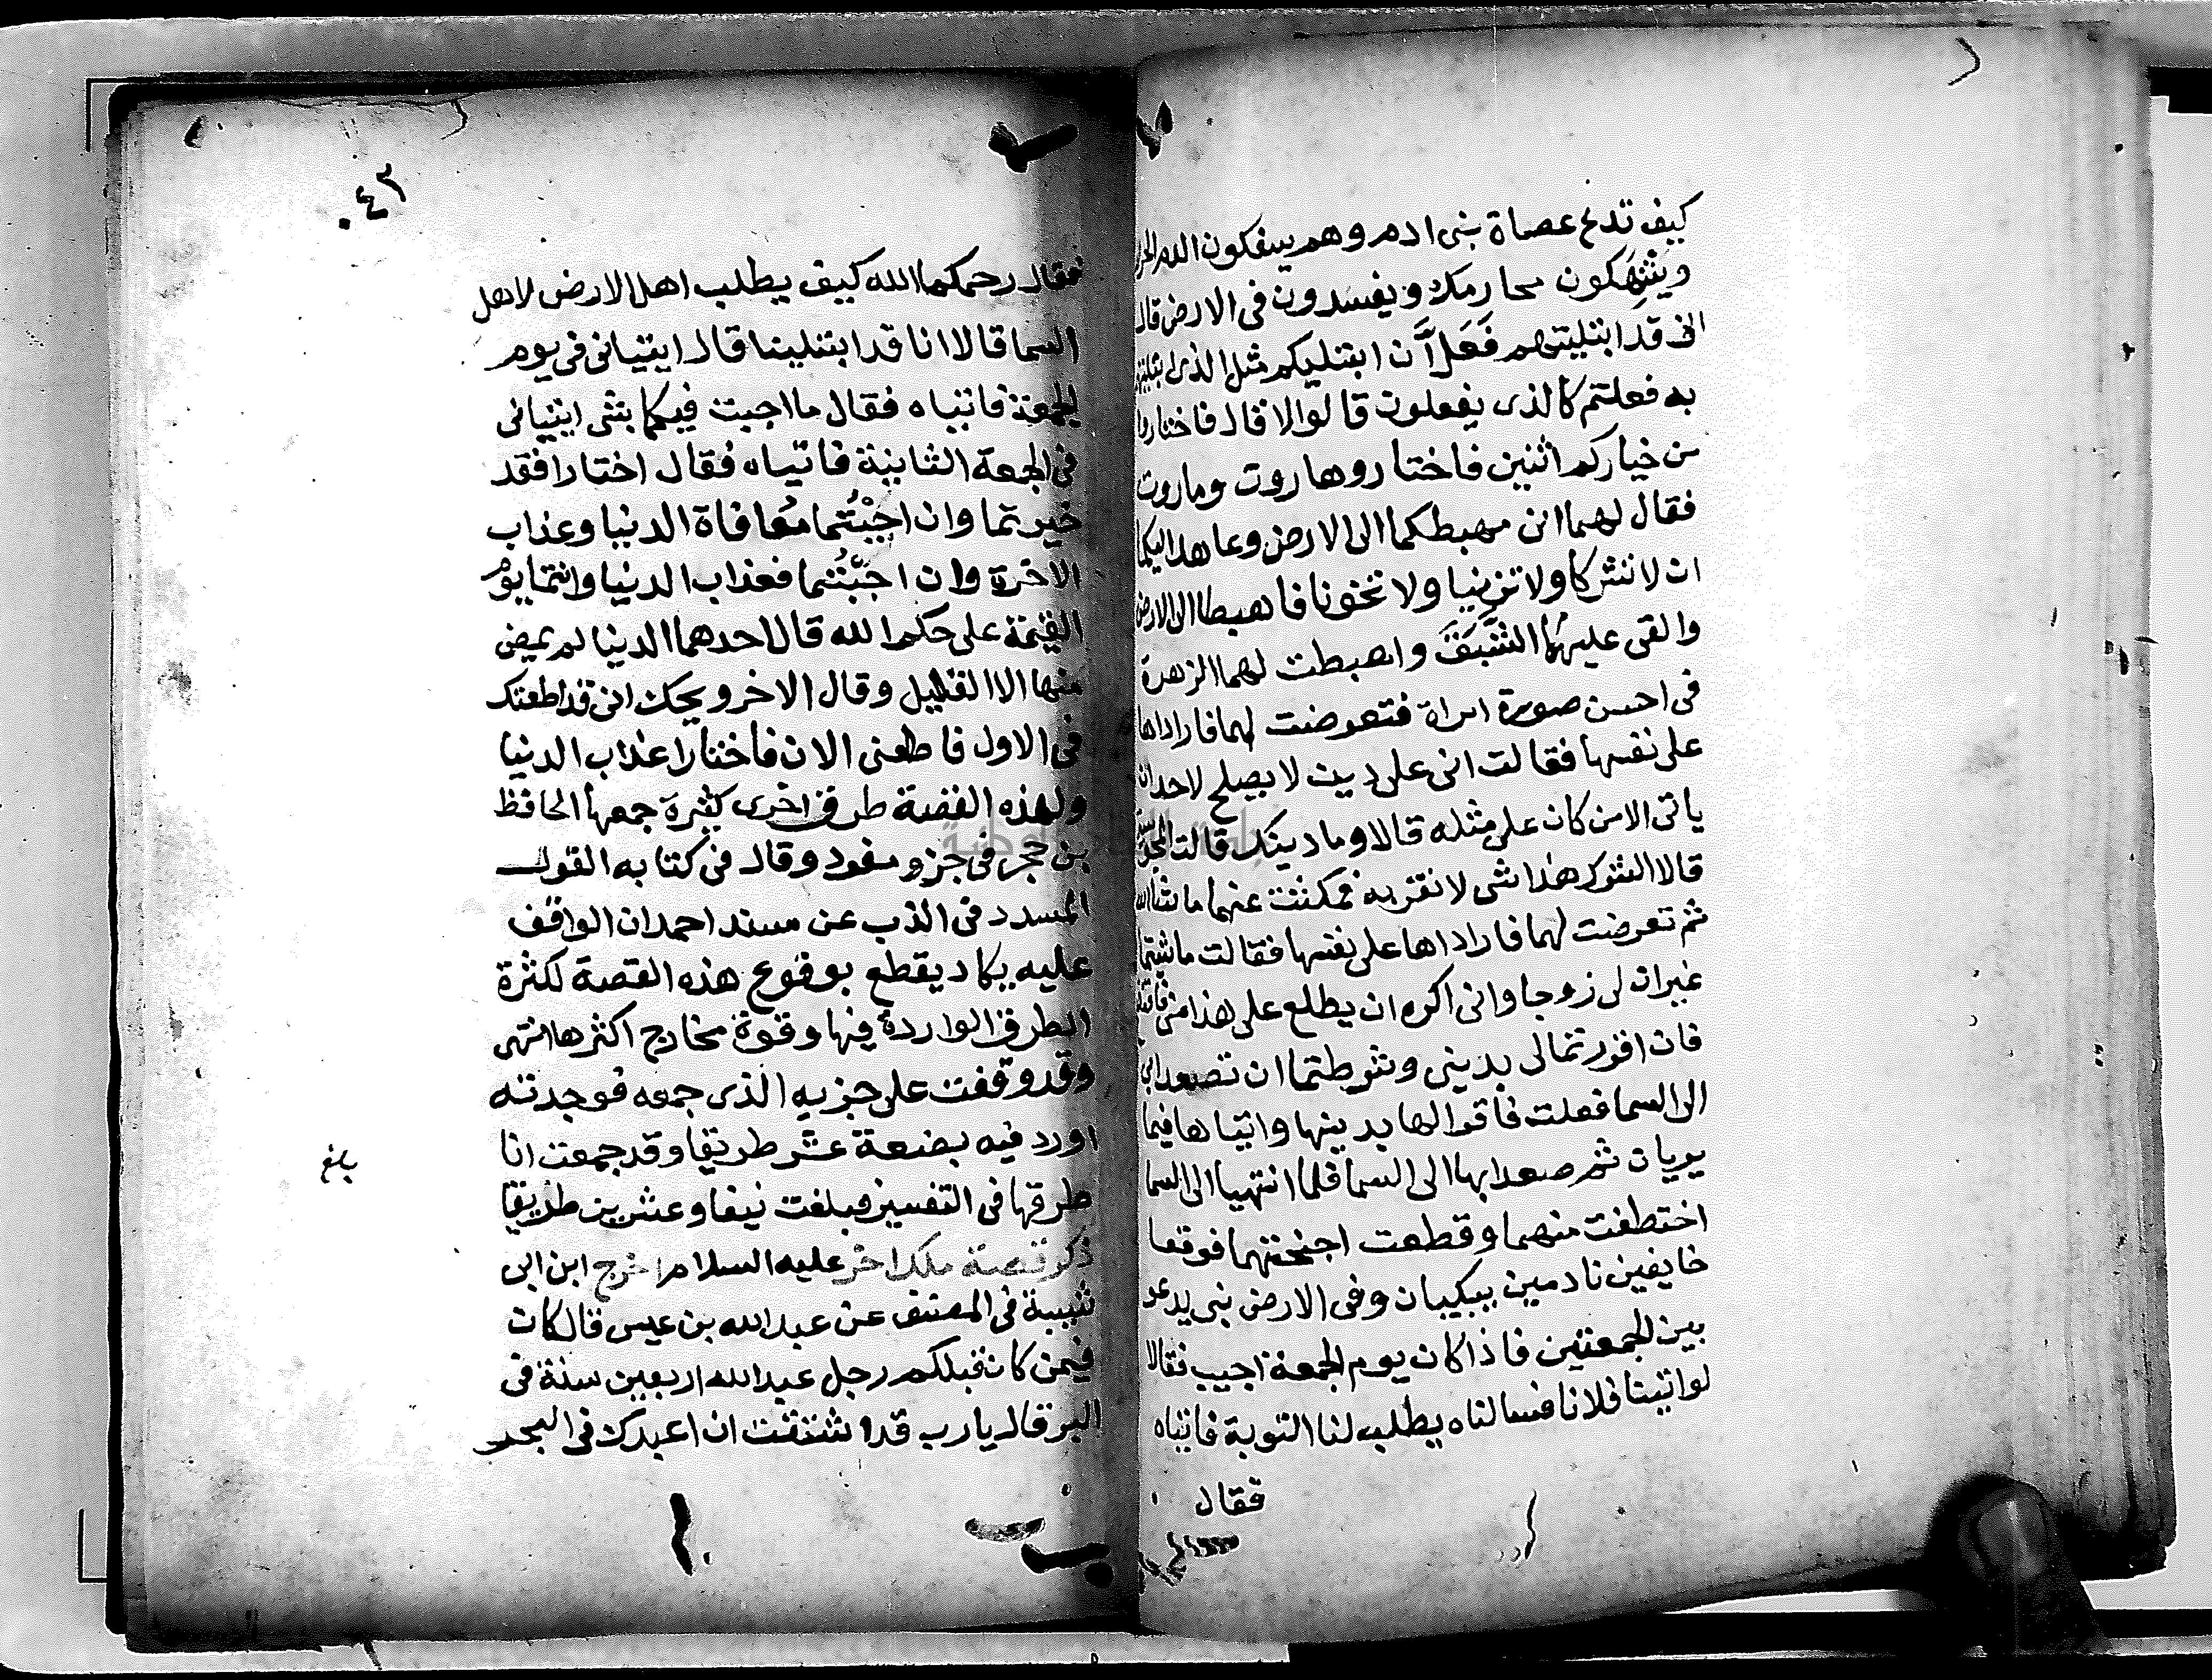 كيف تدع عصاة بني ادم وهم يسفكون الدم الحرام
وينتهكون محارمك ويفسدون في الارض قال
اني قد ابتليتهم فعل ان ابتليكم مثل الذي ابتليتهم
به فعلتم كالذي يفعلون قالوا لا قال فاختاروا
من خياركم اثنين فاختاروا هاروت وماروت
فقال لهما اني مهبطكما الى الارض وعاهد اليكما
ان لا تشركا ولا تزنيا ولا تخونا فاهبطا الى الارض
والقى عليهما الشبق واهبطت لهما الزهرة
في احسن صورة امراة فتعرضت لهما فاراداها
على نفسها فقالت اني على دين لا يصلح لاحد ان
ياتي الا من كان على مثله قالا وما دينك قالت المجوسية
قالا الشرك هذا شي لا نقر به فمكثت عنهما ما شا الله
ثم تعرضت لهما فاراداها على نفسها فقالت ما شيتما
غير ان لي زوجا واني اكره ان يطلع على هذا مني فافتضح
فان اقررتما لي بديني وشرطتما ان تصعدا بي
الى السما فعلت فاقرا لها بدينها واتياها فيما
يريان ثم صعدا بها الى السما فلما انتهيا الى السما
اختطفت منهما وقطعت اجنحتهما فوقعا
خايفين نادمين يبكيان وفي الارض نبي يدعو
بين الجمعتين فاذا كان يوم الجمعة اجيب فقالا
لو اتينا فلانا فسالناه يطلب لنا التوبة فاتياه
فقال
٠٤٢
فقال رحمكما الله كيف يطلب اهل الارض لاهل
السما قالا انا قد ابتلينا قال ايتياني في يوم
الجمعة فاتياه فقال ما اجبت فيكما بشي ايتياني
في الجمعة الثانية فاتياه فقال اختارا فقد
خيرتما وان اجبتما معافاة الدنيا وعذاب
الاخرة وان اجبتما فعذاب الدنيا وانتما يوم
القيمة على حكم الله قال احدهما الدنيا لم يمض
منها الا القليل وقال الاخر ويحك اني قد اطعتك
في الاول فاطعني الان فاختارا عذاب الدنيا
ولهذه القصة طرق اخرى كثيرة جمعها الحافظ
بن حجر في جزء مفرد وقال في كتابه القول
المسدد في الذب عن مسند احمد ان الواقف
عليه يكاد يقطع بوقوع هذه القصة لكثرة
الطرق الواردة فيها وقوة مخارج اكثرها انتهى
وقد وقفت على جزيه الذي جمعه فوجدته
اورد فيه بضعة عشر طريقا وقد جمعت انا
طرقها في التفسير فبلغت نيفا وعشرين طريقا
ذكر قصة ملك اخر عليه السلام اخرج ابن ابي
شيبة في المصنف عن عبد الله بن عيسى قال كان
فيمن كان قبلكم رجل عبد الله اربعين سنة في
البر قال يا رب قد اشتقت ان اعبدك في البحر
بلغ